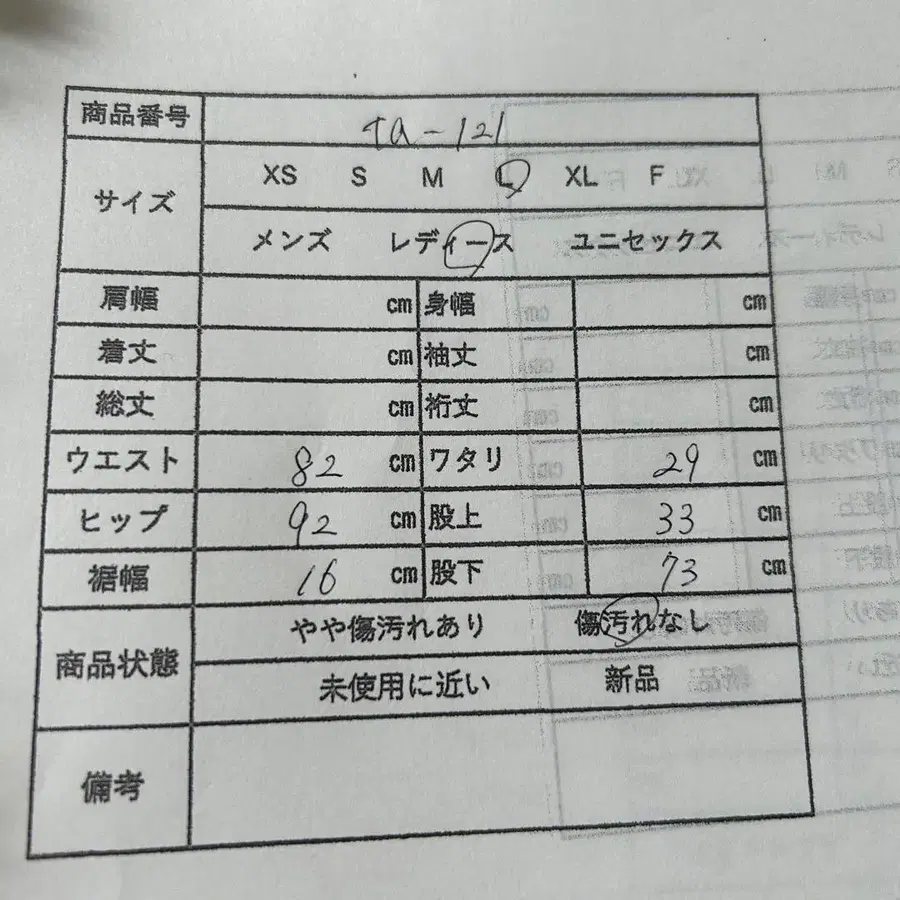 商品番号 ta-121
サイズ XS S M L XL F
メンズ レディース ユニセックス
肩幅 cm 身幅 cm
着丈 cm 袖丈 cm
総丈 cm 裄丈 cm
ウエスト 82 cm ワタリ 29 cm
ヒップ 92 cm 股上 33 cm
裾幅 16 cm 股下 73 cm
商品状態 やや傷汚れあり 傷汚れなし
未使用に近い 新品
備考